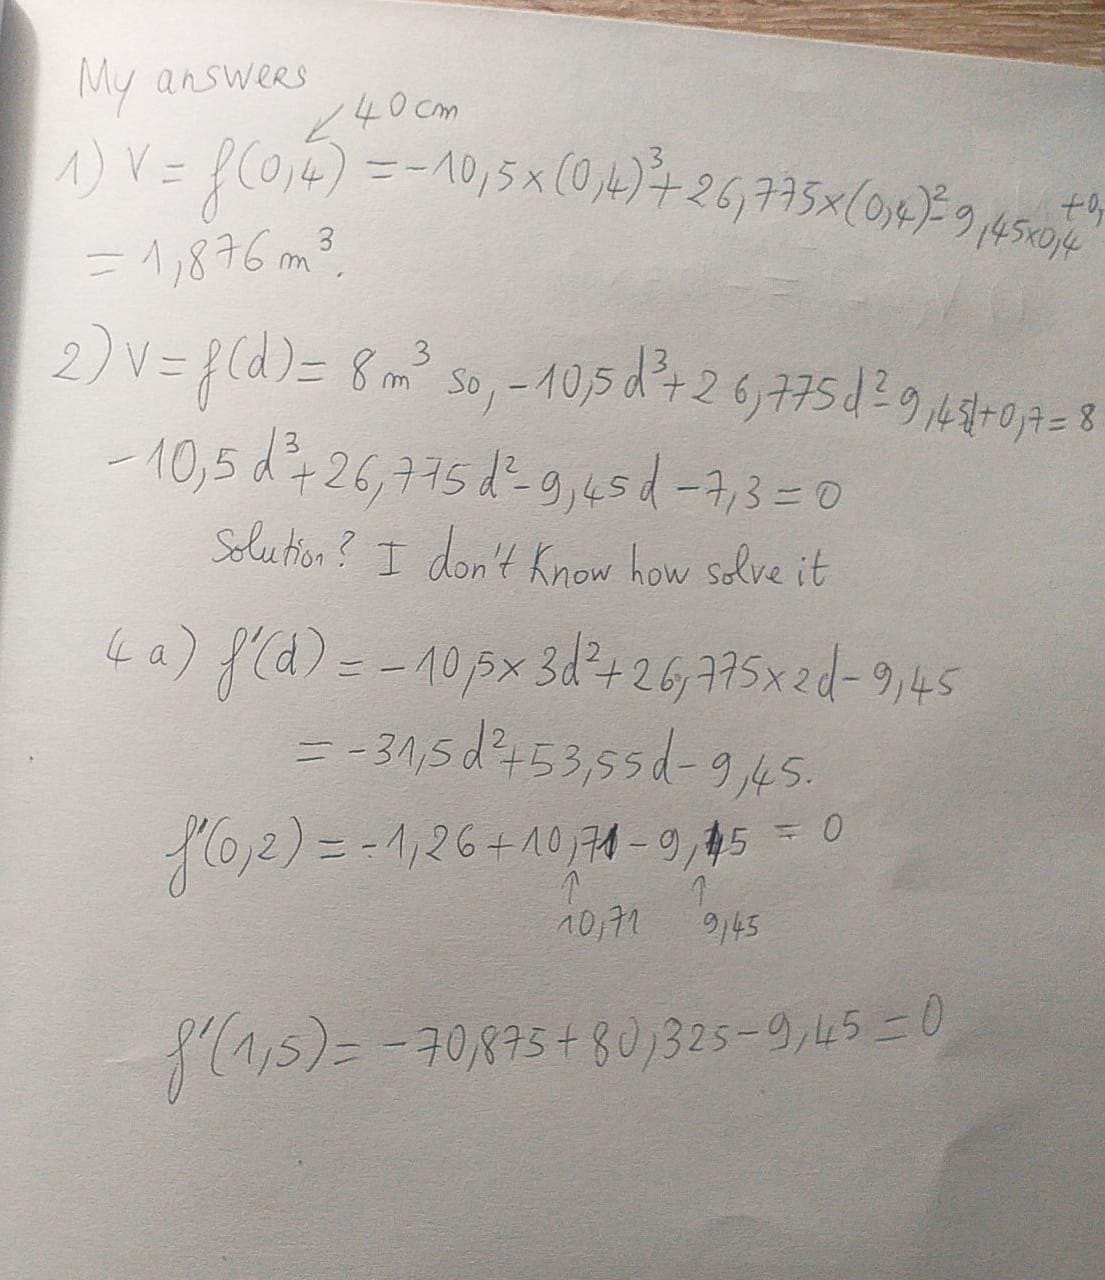 My answers
↙ 40cm
1) V = f(0,4) = -10,5×(0,4)³+26,775×(0,4)²-9,45×0,4 +0,
= 1,876 m³.
2) V = f(d) = 8 m³ so, -10,5d³+26,775d²-9,45d+0,7=8
-10,5d³+26,775d²-9,45d-7,3=0
Solution? I don't know how solve it
4a) f'(d) = -10,5×3d²+26,775×2d-9,45
= -31,5d²+53,55d-9,45.
f'(0,2) = -1,26+10,71-9,45 = 0
↑ ↑
10,71 9,45
f'(1,5) = -70,875+80,325-9,45=0